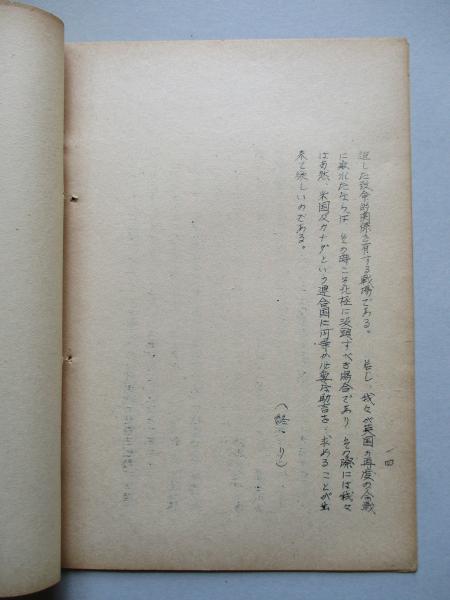 一四
迫した致命的関係を有する戦場である。 若し、我々が英国の再度の会戦
に敗れたならば、その時こそ北極に没頭すべき場合であり、その際には我々
は当然、米国及カナダという連合国に何等か必要な助言を、求めることが出
来て欲しいのである。
（終 り）